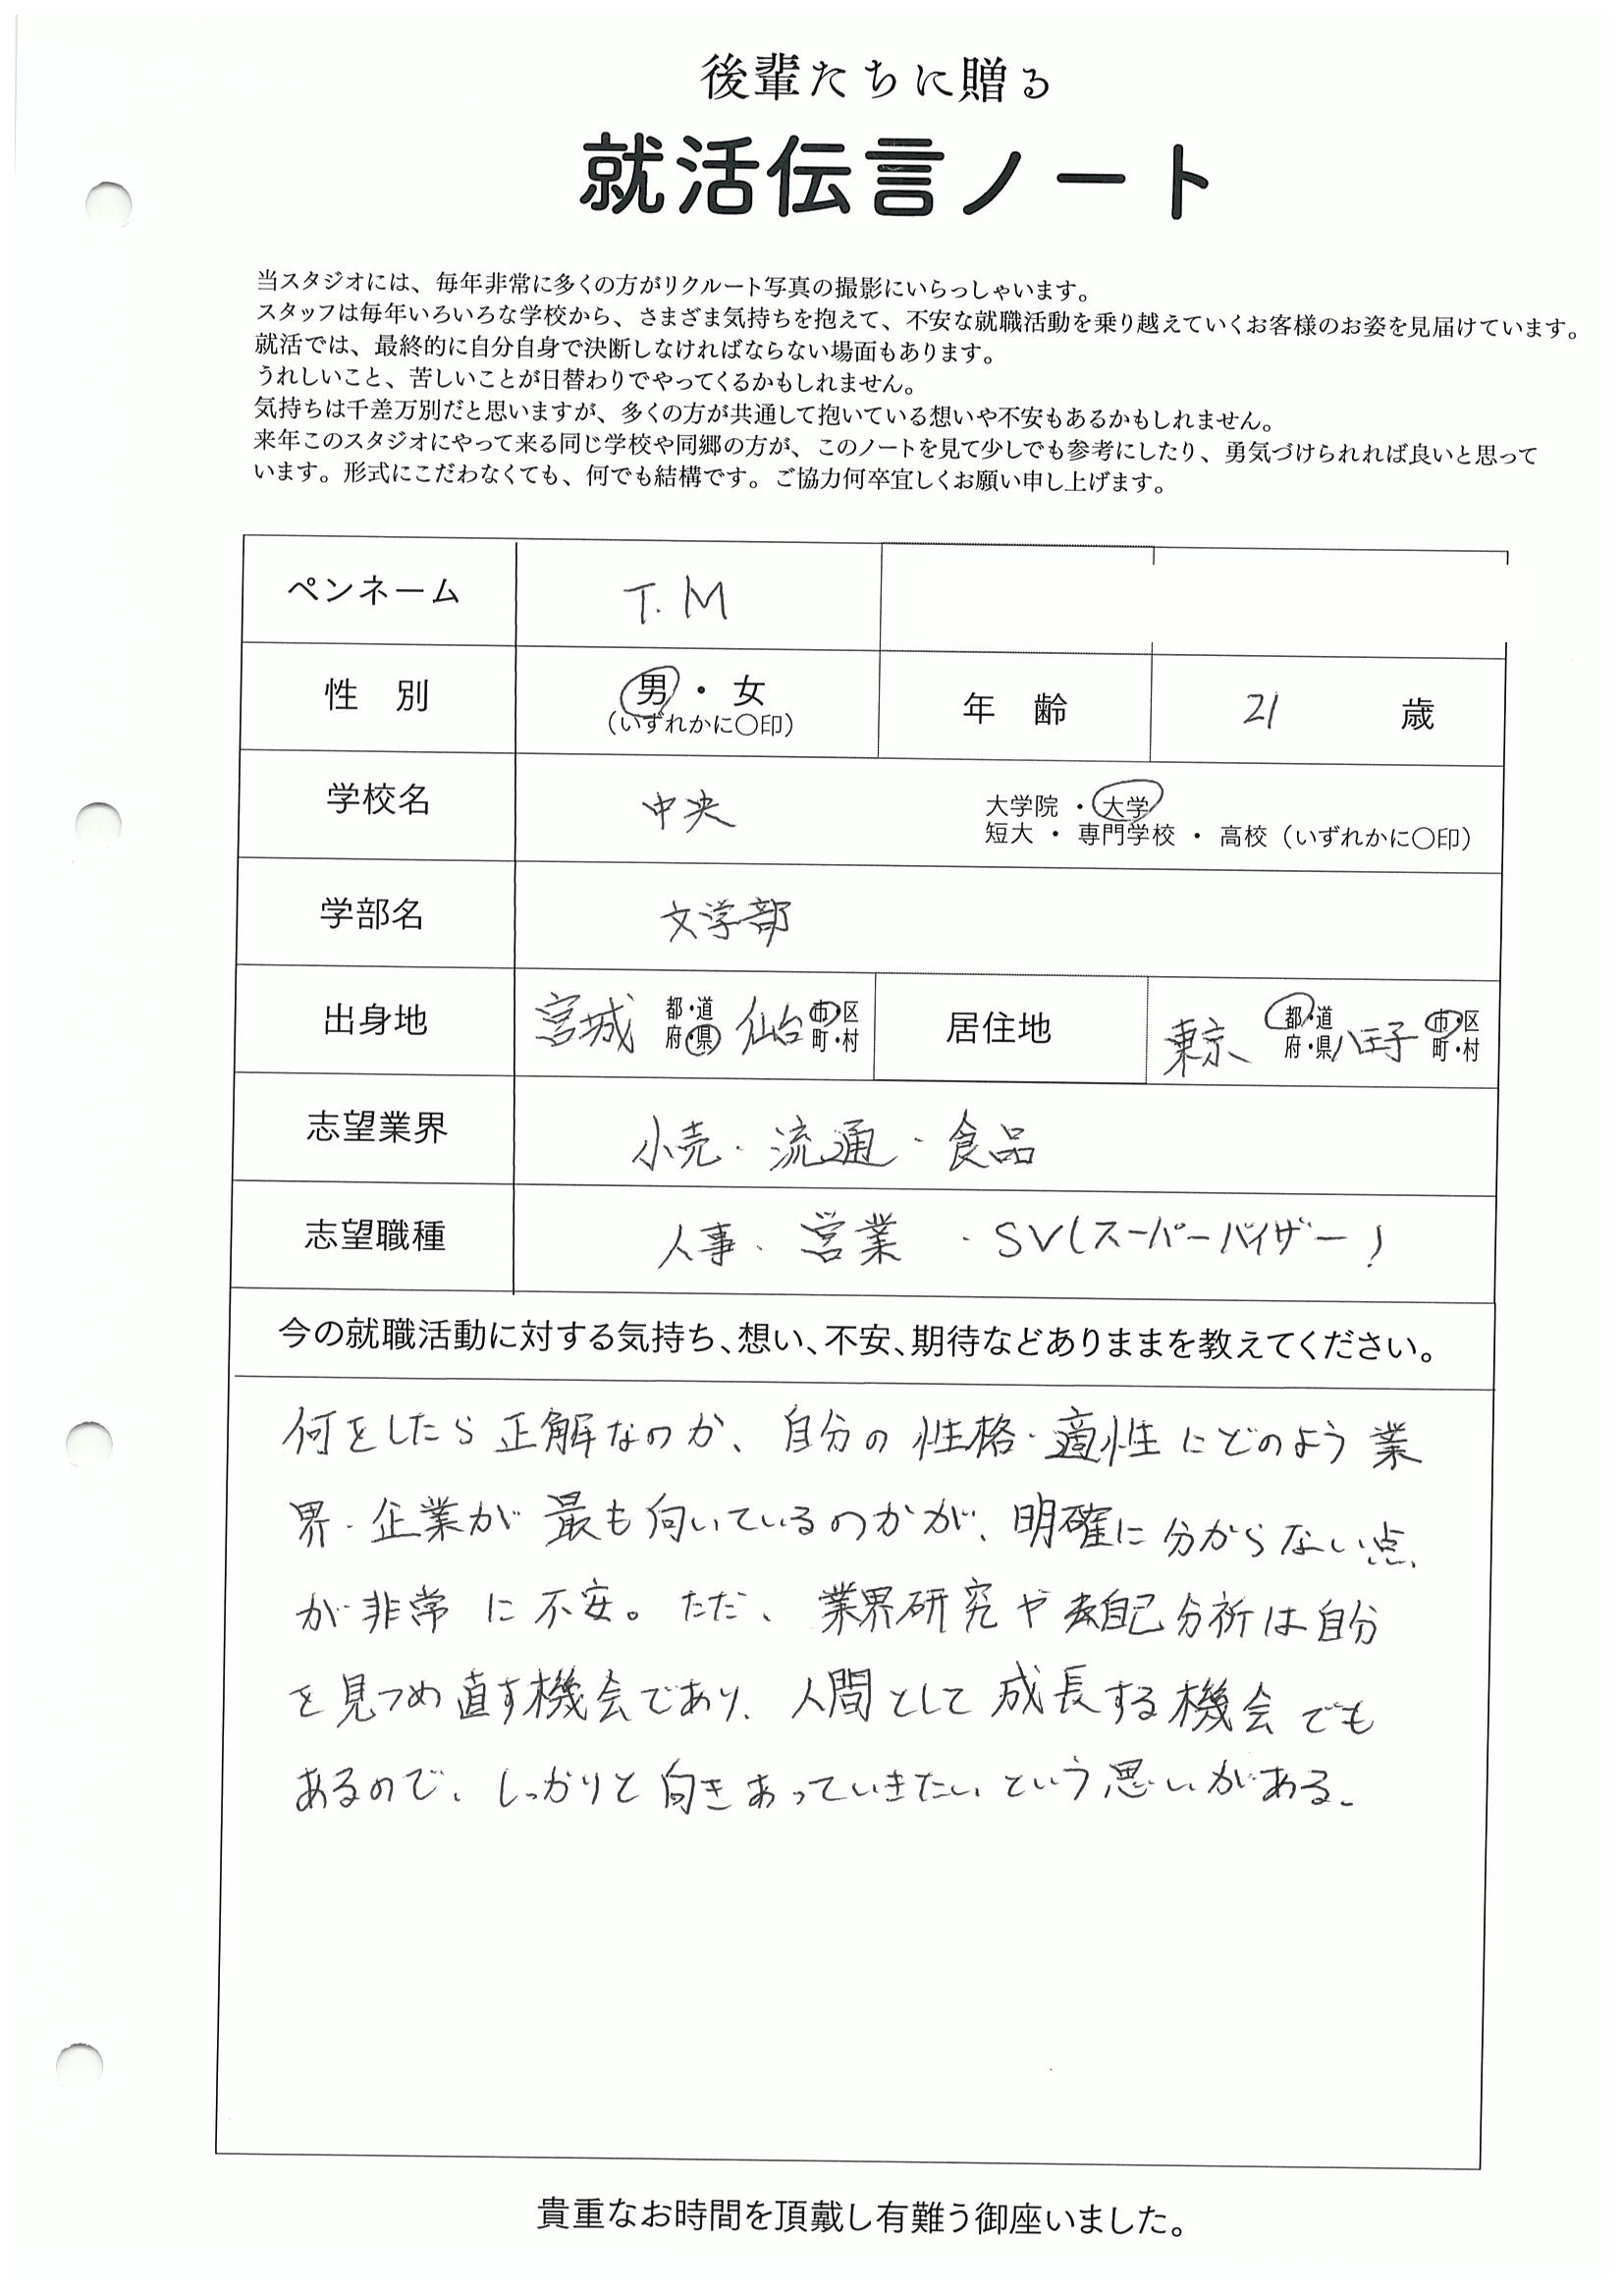 後輩たちに贈る
就活伝言ノート
当スタジオには、毎年非常に多くの方がリクルート写真の撮影にいらっしゃいます。
スタッフは毎年いろいろな学校から、さまざま気持ちを抱えて、不安な就職活動を乗り越えていくお客様のお姿を見届けています。
就活では、最終的に自分自身で決断しなければならない場面もあります。
うれしいこと、苦しいことが日替わりでやってくるかもしれません。
気持ちは千差万別だと思いますが、多くの方が共通して抱いている想いや不安もあるかもしれません。
来年このスタジオにやって来る同じ学校や同郷の方が、このノートを見て少しでも参考にしたり、勇気づけられれば良いと思って
います。形式にこだわなくても、何でも結構です。ご協力何卒宜しくお願い申し上げます。
ペンネーム T.M
性 別 男・女 年 齢 21 歳
(いずれかに〇印)
学校名 中央 大学院 ・ 大学
短大 ・ 専門学校 ・ 高校 (いずれかに〇印)
学部名 文学部
出身地 宮城 都・道 府・県 仙台 市・区 町・村 居住地 東京 都・道 府・県 八王子 市・区 町・村
志望業界 小売・流通・食品
志望職種 人事・営業・SV(スーパーバイザー)
今の就職活動に対する気持ち、想い、不安、期待などありままを教えてください。
何をしたら正解なのか、自分の性格・適性にどのよう業
界・企業が最も向いているのかが、明確に分からない点
が非常に不安。ただ、業界研究や自己分析は自分
を見つめ直す機会であり、人間として成長する機会でも
あるので、しっかりと向きあっていきたいという思いがある。
貴重なお時間を頂戴し有難う御座いました。